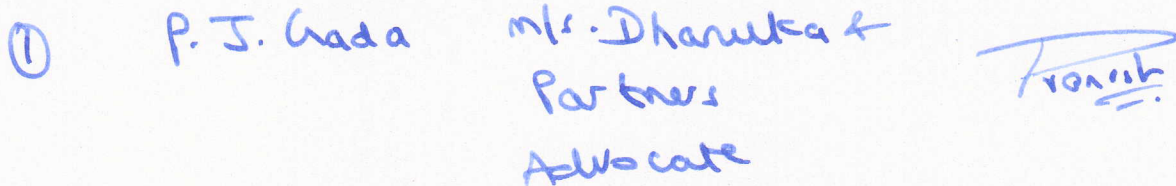 ① P. J. Gada M/s. Dhanuka &
Partners
Advocate